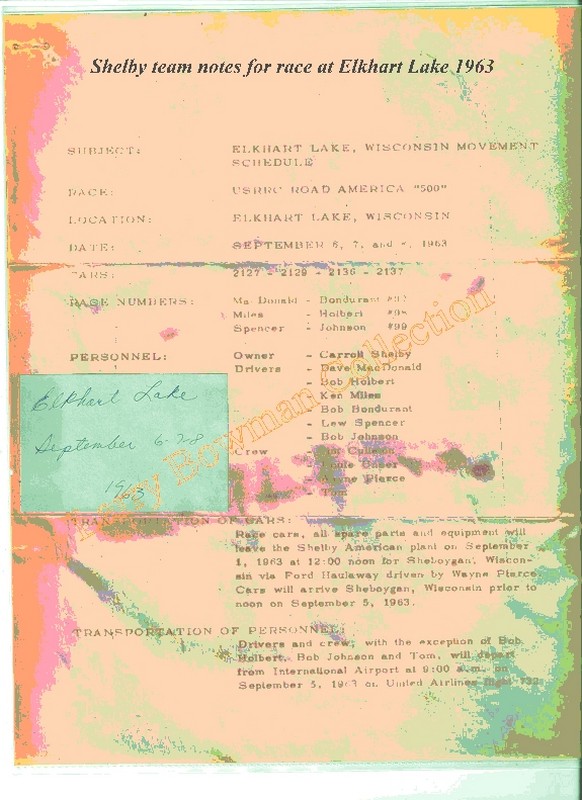 Shelby team notes for race at Elkhart Lake 1963
SUBJECT: ELKHART LAKE, WISCONSIN MOVEMENT
SCHEDULE
RACE: USRRC ROAD AMERICA "500"
LOCATION: ELKHART LAKE, WISCONSIN
DATE: SEPTEMBER 6, 7, and 1963
CARS: 2127 - 2129 - 2136 - 2137
RACE NUMBERS: Mac Donald - Bondurant #97
Miles - Holbert #98
Spencer - Johnson #99
PERSONNEL: Owner - Carroll Shelby
Drivers - Dave MacDonald
- Bob Holbert
- Ken Miles
- Bob Bondurant
- Lew Spencer
- Bob Johnson
Crew
- Wayne Pierce
- Tom
Elkhart Lake
September 6-7-8
1963
Larry Bowman Collection
TRANSPORTATION OF CARS:
Race cars, all spare parts and equipment will
leave the Shelby American plant on September
1, 1963 at 12:00 noon for Sheboygan, Wiscon-
sin via Ford Haulaway driven by Wayne Pierce.
Cars will arrive Sheboygan, Wisconsin prior to
noon on September 5, 1963.
TRANSPORTATION OF PERSONNEL:
Drivers and crew, with the exception of Bob
Holbert, Bob Johnson and Tom, will depart
from International Airport at 9:00 a.m. on
September 5, 1963 on United Airlines flight 732